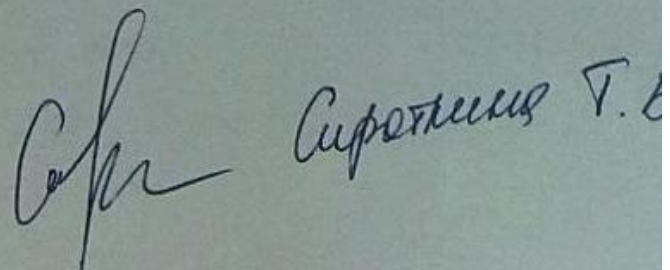 Сироткина Т.